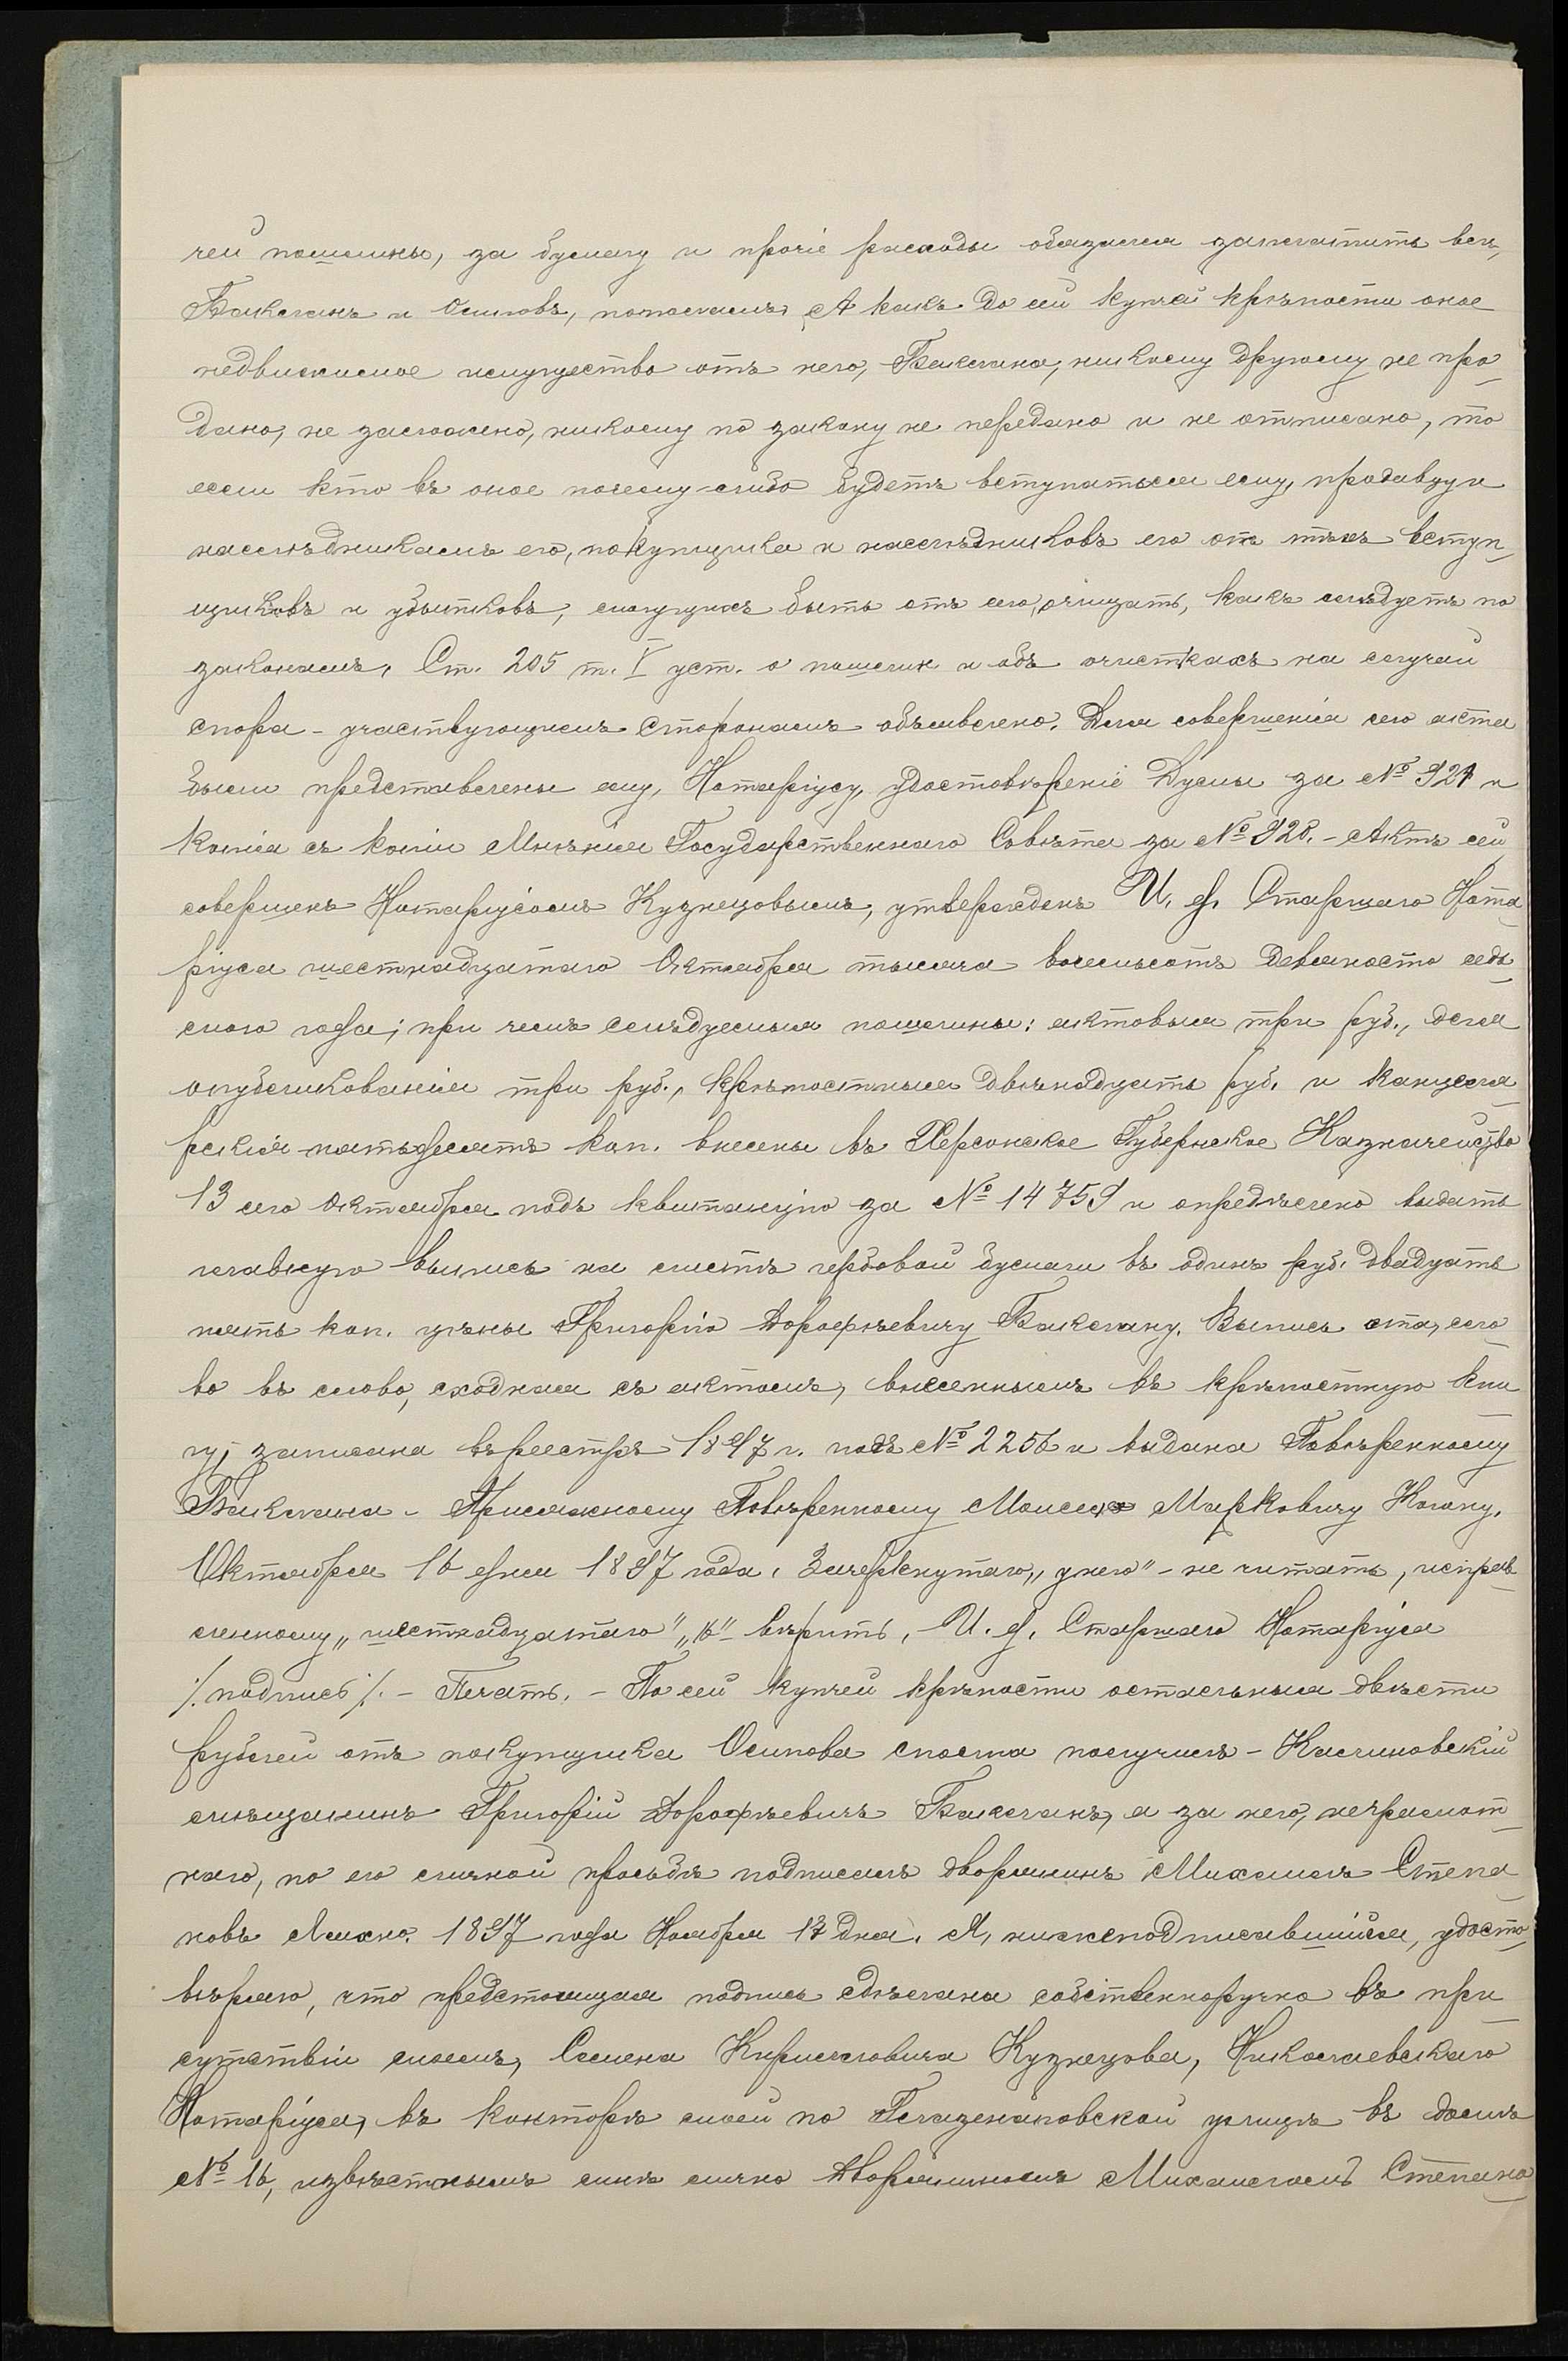 чей пошлины, за бумагу и прочіе расходы обязался заплатить всѣ,
Баклапъ и Осиповъ, пополамъ, А какъ до сей купчей крѣпости оное
недвижимое имущество отъ него, Баклана, никому другому не про
дано, не заложено, никому по закону не передано и не отписано, то
если кто въ оное почему-либо будетъ вступаться ему, продавцу и
наслѣдникамъ его, покупщика и наслѣдниковъ его отъ тѣхъ вступ
щиковъ и убытковъ, могущихъ быть отъ сего, очищать, какъ слѣдуетъ по
законамъ, Ст. 205 т. V уст. о пошлин и объ очисткахъ на случай
спора - участвующимъ сторонамъ объявлено. Для совершенія сего акта
были представлены ему, Нотаріусу, удостовѣреніе Думы за № 927 и
копія съ копіи Мнѣнія Государственнаго Совѣта за № 928. - Актъ сей
совершенъ Нотаріусомъ Кузнецовымъ, утвержденъ И. д. Старшаго Нота
ріуса шестнадцатаго Октября тысяча восемьсотъ девяносто седь
мого года; при чемъ слѣдуемыя пошлины: актовыя три руб., для
опубликованія три руб., крѣпостныя двѣнадцать руб. и канцеля
рскія пятьдесятъ коп. внесены въ Херсонское Губернское Казначейство
13 сего Октября подъ квитанцію за № 14759 и опредѣлено выдать
главную выпись на листѣ гербовой бумаги въ одинъ руб. двадцать
пять коп. цѣны Григорію Дорофѣевичу Баклану. Выпись эта, сло
во въ слово, сходная съ актомъ, внесеннымъ въ крѣпостную кни
гу, записана въ реестръ 1897 г. подъ № 2256 и выдана Повѣренному
Баклана - Присяжному Повѣренному Моисею Марковичу Когану,
Октября 16 дня 1897 года, Зачеркнутаго „у него" - не читать, исправ
ленному „шестнадцатаго" „16" вѣрить, И. д. Старшаго Нотаріуса
/. подпись /. - Печать. - По сей купчей крѣпости остальныя двѣсти
рублей отъ покупщика Осипова сполна получилъ - Касиновскій
мѣщанинъ Григорій Дорофѣевичъ Бакланъ, а за него, неграмот
наго, по его личной просьбѣ подписалъ дворянинъ Михаилъ Степа
новъ Лихно. 1897 года Ноября 13 дня. Я, нижеподписавшійся, удосто
вѣряю, что предстоящая подпись сдѣлана собственноручно въ при
сутствіи моемъ, Семена Кирилловича Кузнецова, Николаевскаго
Нотаріуса, въ конторѣ моей по Глазенаповской улицѣ въ домѣ
№ 16, извѣстнымъ мнѣ лично дворяниномъ Михаиломъ Степано